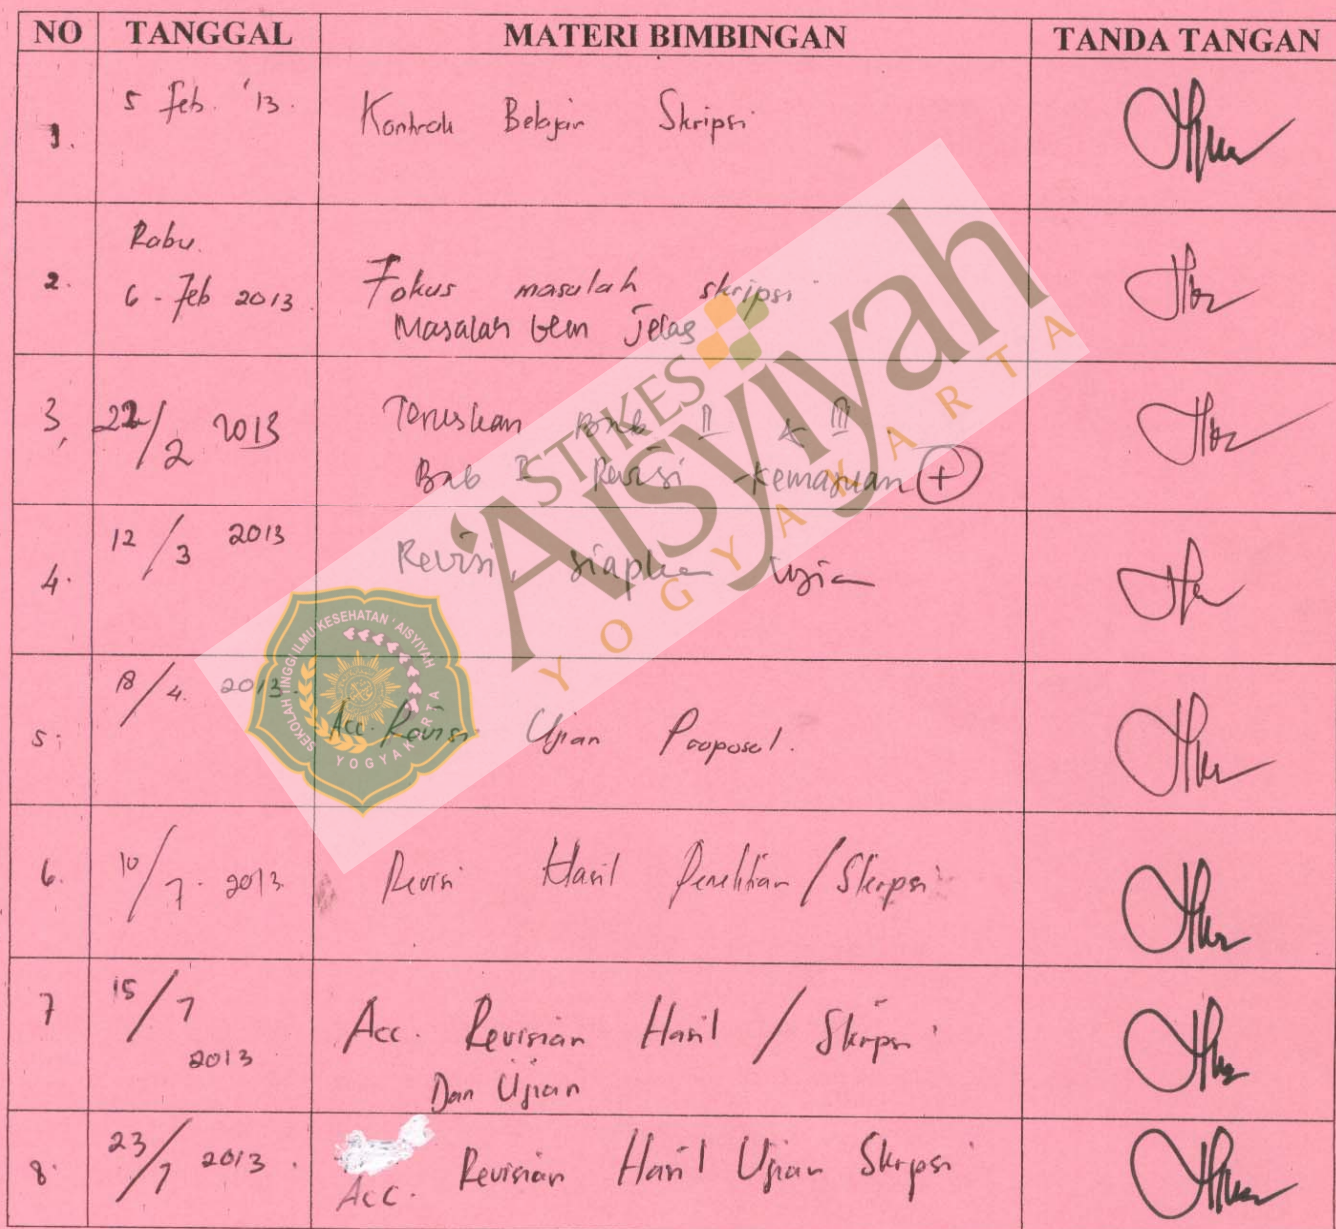 NO TANGGAL MATERI BIMBINGAN TANDA TANGAN
1. 5 Feb. '13. Kontrak Belajar Skripsi
2. Rabu. 6 - Feb 2013 Fokus masalah skripsi
Masalah blm Jelas
3, 22/2 2013 Teruskan Bab II & III
Bab I Revisi - kemajuan +
4. 12/3 2013 Revisi, siapkan Ujian
5. 18/4. 2013. Acc. Revisi Ujian Proposal.
6. 10/7. 2013 Revisi Hasil Penelitian / Skripsi
7 15/7 2013 Acc. Revisian Hasil / Skripsi
Dan Ujian
8. 23/7 2013. Acc. Revisian Hasil Ujian Skripsi
STIKES
'Aisyiyah
YOGYAKARTA
SEKOLAH TINGGI ILMU KESEHATAN 'AISYIYAH
YOGYAKARTA